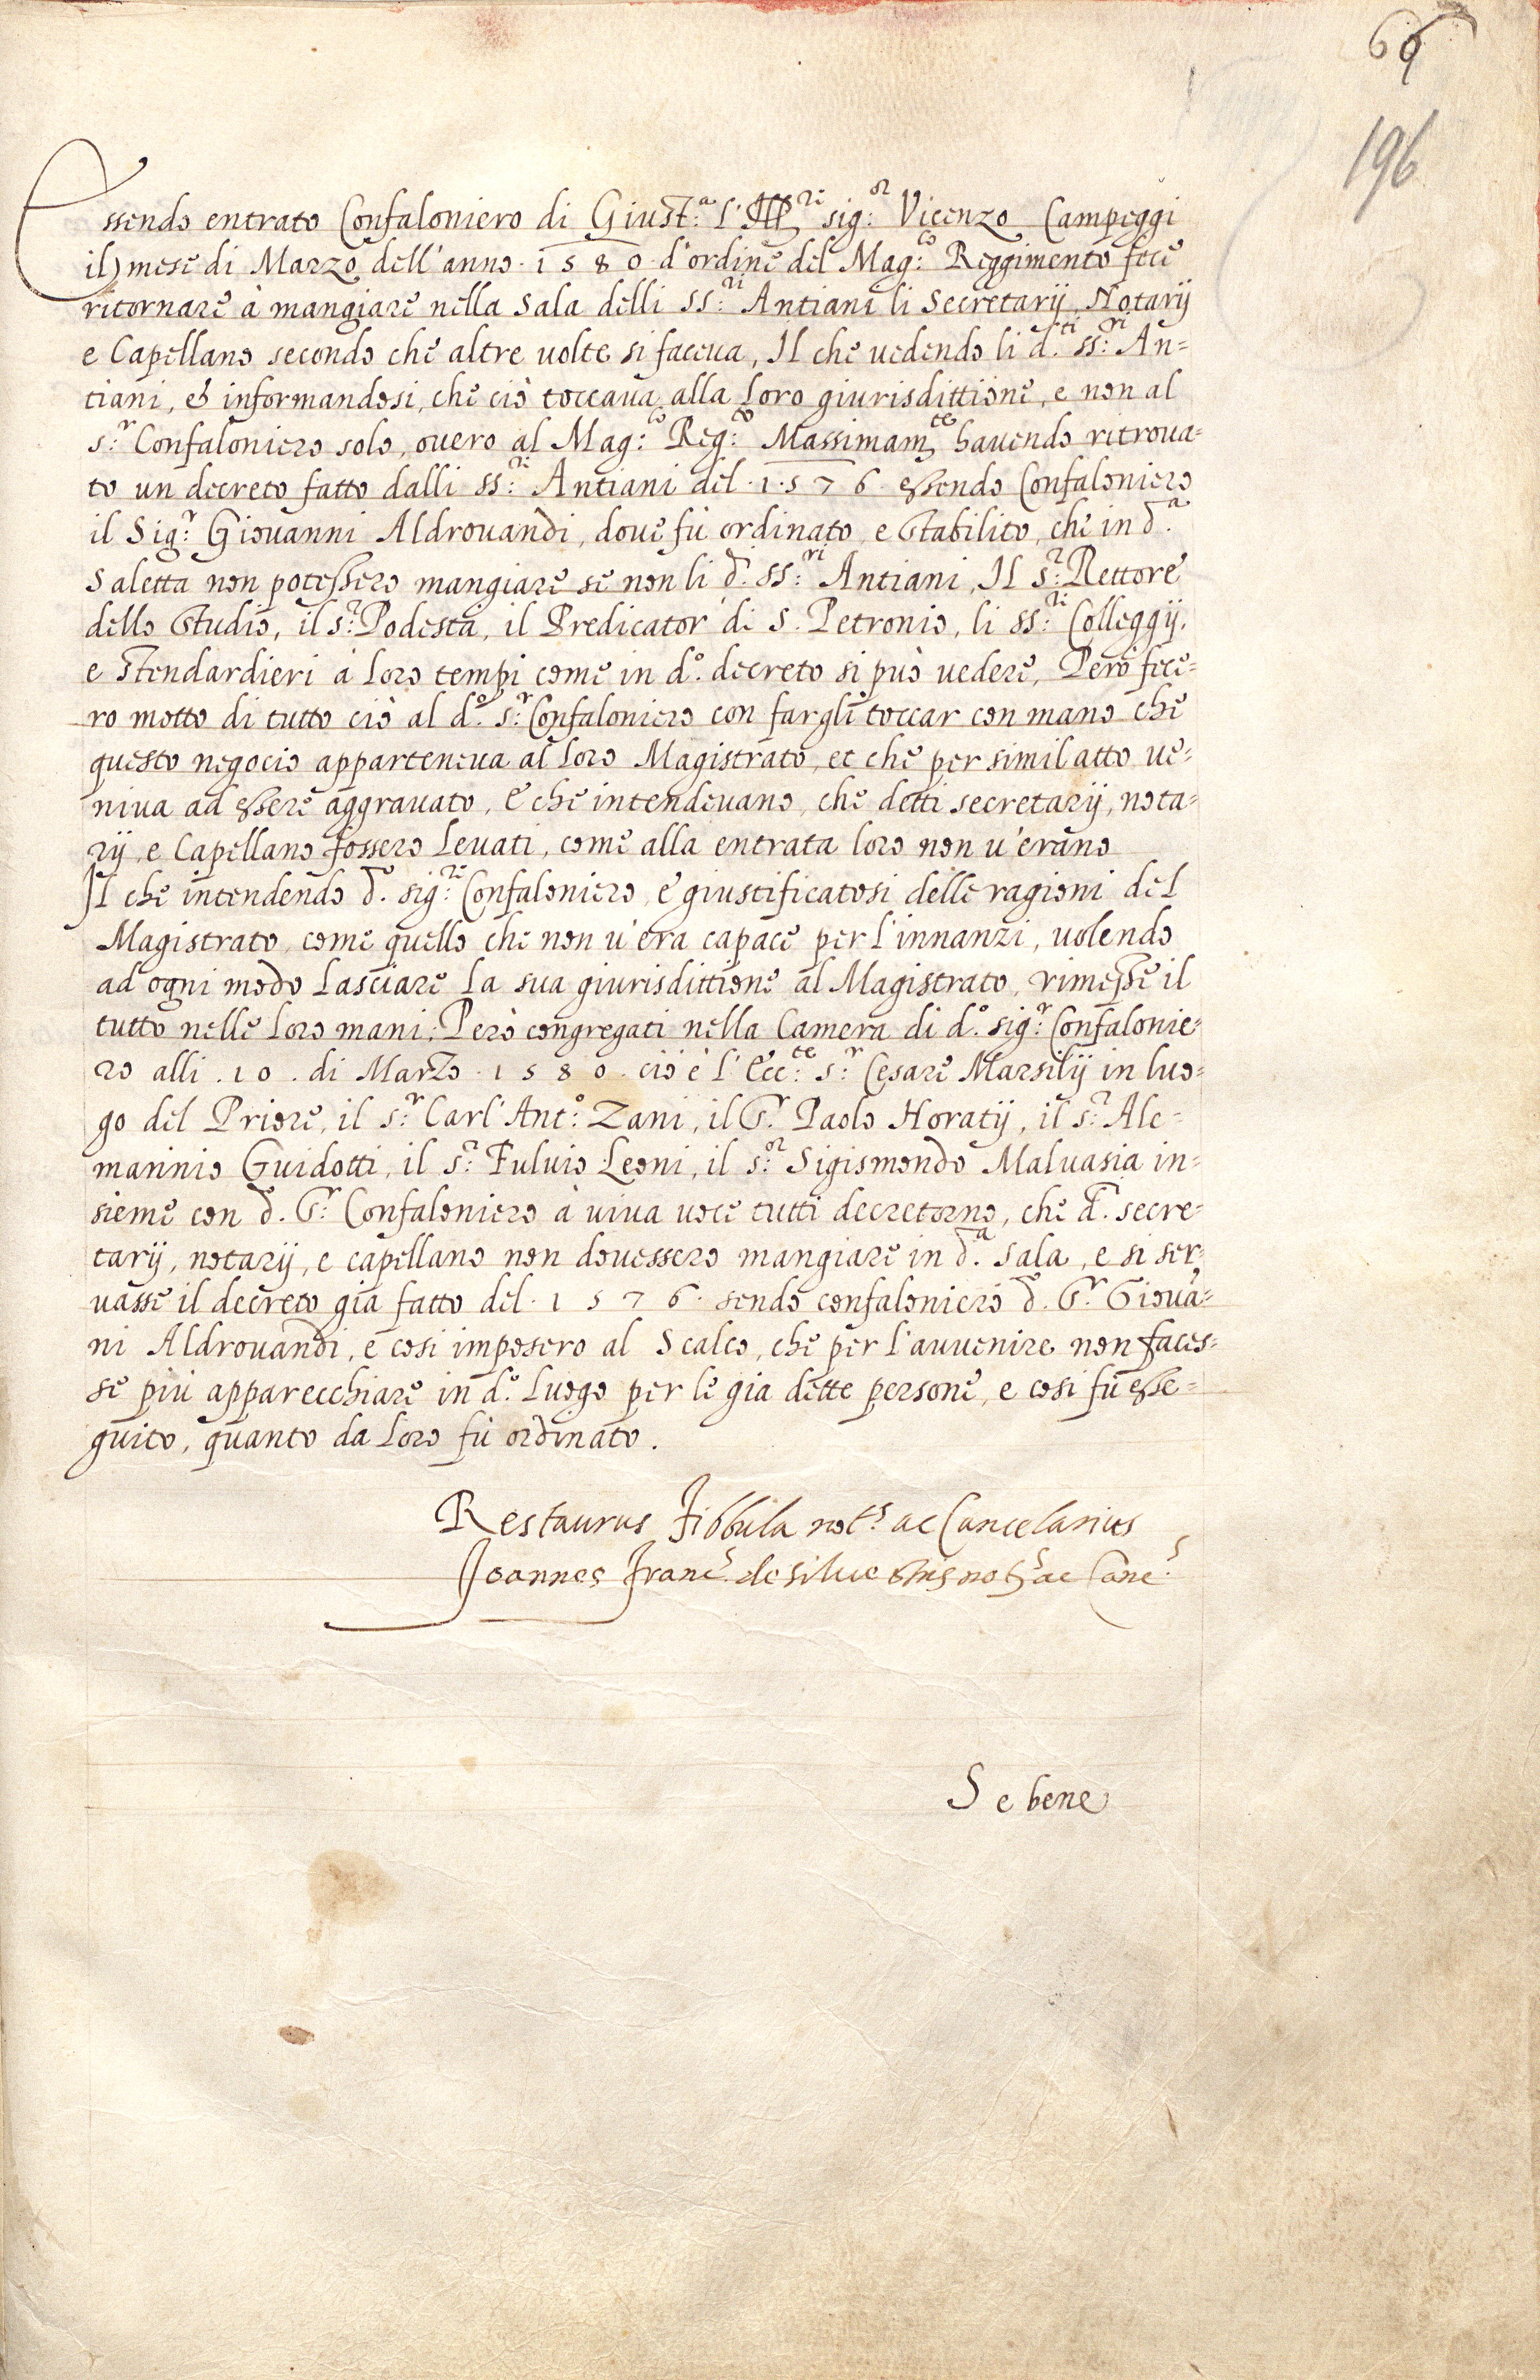 69
196
Essendo entrato Confaloniero di Giust.ª l'Ill.re sig.or Vicenzo Campeggi
il mese di Marzo dell'anno .1580. d'ordine del Mag.co Reggimento fece
ritornare à mangiare nella Sala delli SS.ri Antiani li Secretarij, Notarij
e Capellano secondo che altre volte si faceua, Il che uedendo li d.ti ss.ri An=
tiani, et informandosi, che ciò toccaua alla loro giurisdittione, e non al
s.r Confaloniero solo, ouero al Mag.co Reg.to Massimam.te hauendo ritroua=
to un decreto fatto dalli ss.ri Antiani del .1576. essendo Confaloniero
il Sig.r Giouanni Aldrouandi, doue fù ordinato, e stabilito, che in d.ª
Saletta non potessero mangiare se non li d.i SS.ri Antiani, Il s.r Rettore
dello studio, il s.r Podesta, il Predicator di S. Petronio, li ss.ri Colleggij,
e stendardieri à loro tempi come in d.º decreto si può uedere, Però fece=
ro motto di tutto ciò al d.º s.r Confaloniero con fargli toccar con mano che
questo negocio apparteneua al loro Magistrato, et che per simil atto ue=
niua ad essere aggrauato, e che intendeuano, che detti secretarij, nota=
rij, e Capellano fossero leuati, come alla entrata loro non u'erano
Il che intendendo d.º sig.re Confaloniero, e giustificatosi delle ragioni del
Magistrato, come quello che non u'era capace per l'innanzi, uolendo
ad ogni modo lasciare la sua giurisdittione al Magistrato, rimesse il
tutto nelle loro mani; Però congregati nella Camera di d.º sig.r Confalonie=
ro alli .10. di Marzo .1580. cio è l'Ecc.te s.r Cesare Marsilij in luo=
go del Priore, il s.r Carl'Ant.º Zani, il S.r Paolo Horatij, il s.r Ale=
mannio Guidotti, il s.r Fuluio Leoni, il s.or Sigismondo Maluasia in=
sieme con d.º S.r Confaloniero à uiua uoce tutti decretorno, che d.i secre=
tarij, notarij, e capellano non douessero mangiare in d.ª sala, e si ser
uasse il decreto già fatto del .1576. sendo confaloniero d.º S.r Gioua=
ni Aldrouandi, e cosi imposero al Scalco, che per l'auuenire non faces=
se più apparecchiare in d.º luogo per le gia dette persone, e cosi fù esse=
guito, quanto da loro fù ordinato.
Restaurus Fibbula not.s ac Cancelarius
Joannes Franc.s de siluestris not.s ac Canc.s
Se bene